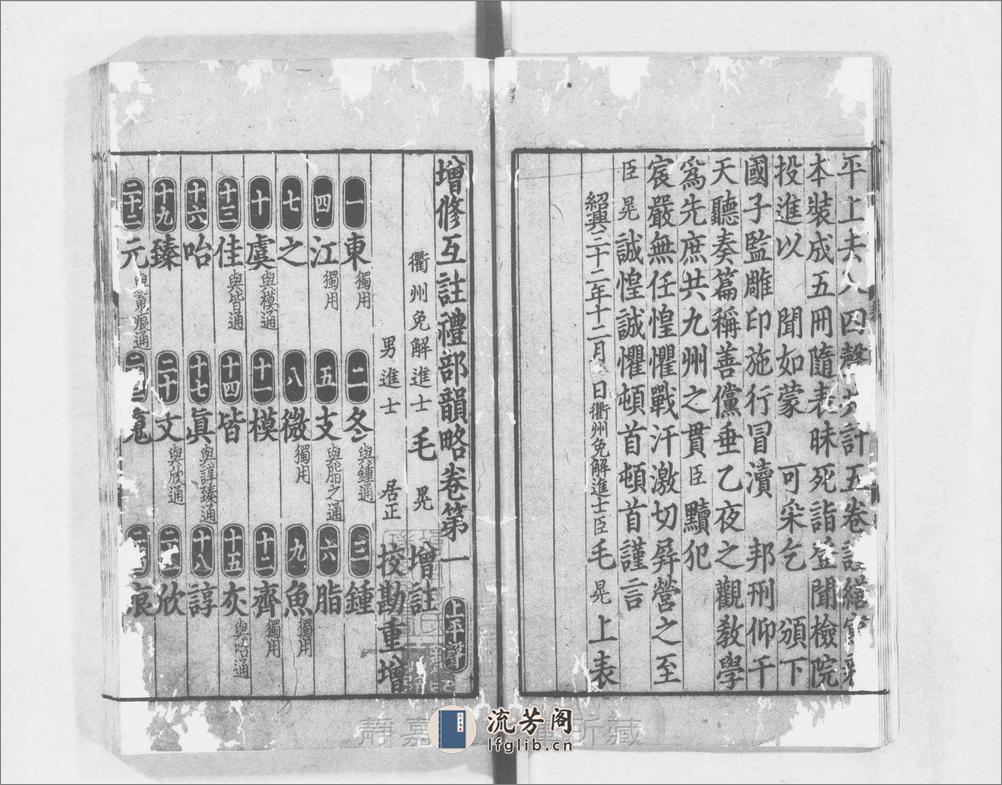 平上去入四聲共計五卷謹繕寫
本裝成五冊隨表昧死詣登聞檢院
投進以聞如蒙可采乞頒下
國子監雕印施行冒瀆邦刑仰干
天聽奏篇稱善儻垂乙夜之觀敎學
爲先庶共九州之貫臣黷犯
宸嚴無任惶懼戰汗激切屛營之至
臣晃誠惶誠懼頓首頓首謹言
紹興三十二年十二月日衢州免解進士臣毛晃上表
增修互註禮部韻略卷第一
上平聲
衢州免解進士毛晃增註
男進士居正挍勘重增
一東獨用二冬與鍾通三鍾
四江獨用五支與脂之通六脂
七之八微獨用九魚獨用
十虞與模通十一模十二齊獨用
十三佳與皆通十四皆十五灰與咍通
十六咍十七眞與諄臻通十八諄
十九臻二十文與欣通欣
二十二元與䰟痕通䰟痕
流芳阁
lfglib.cn
靜嘉所藏